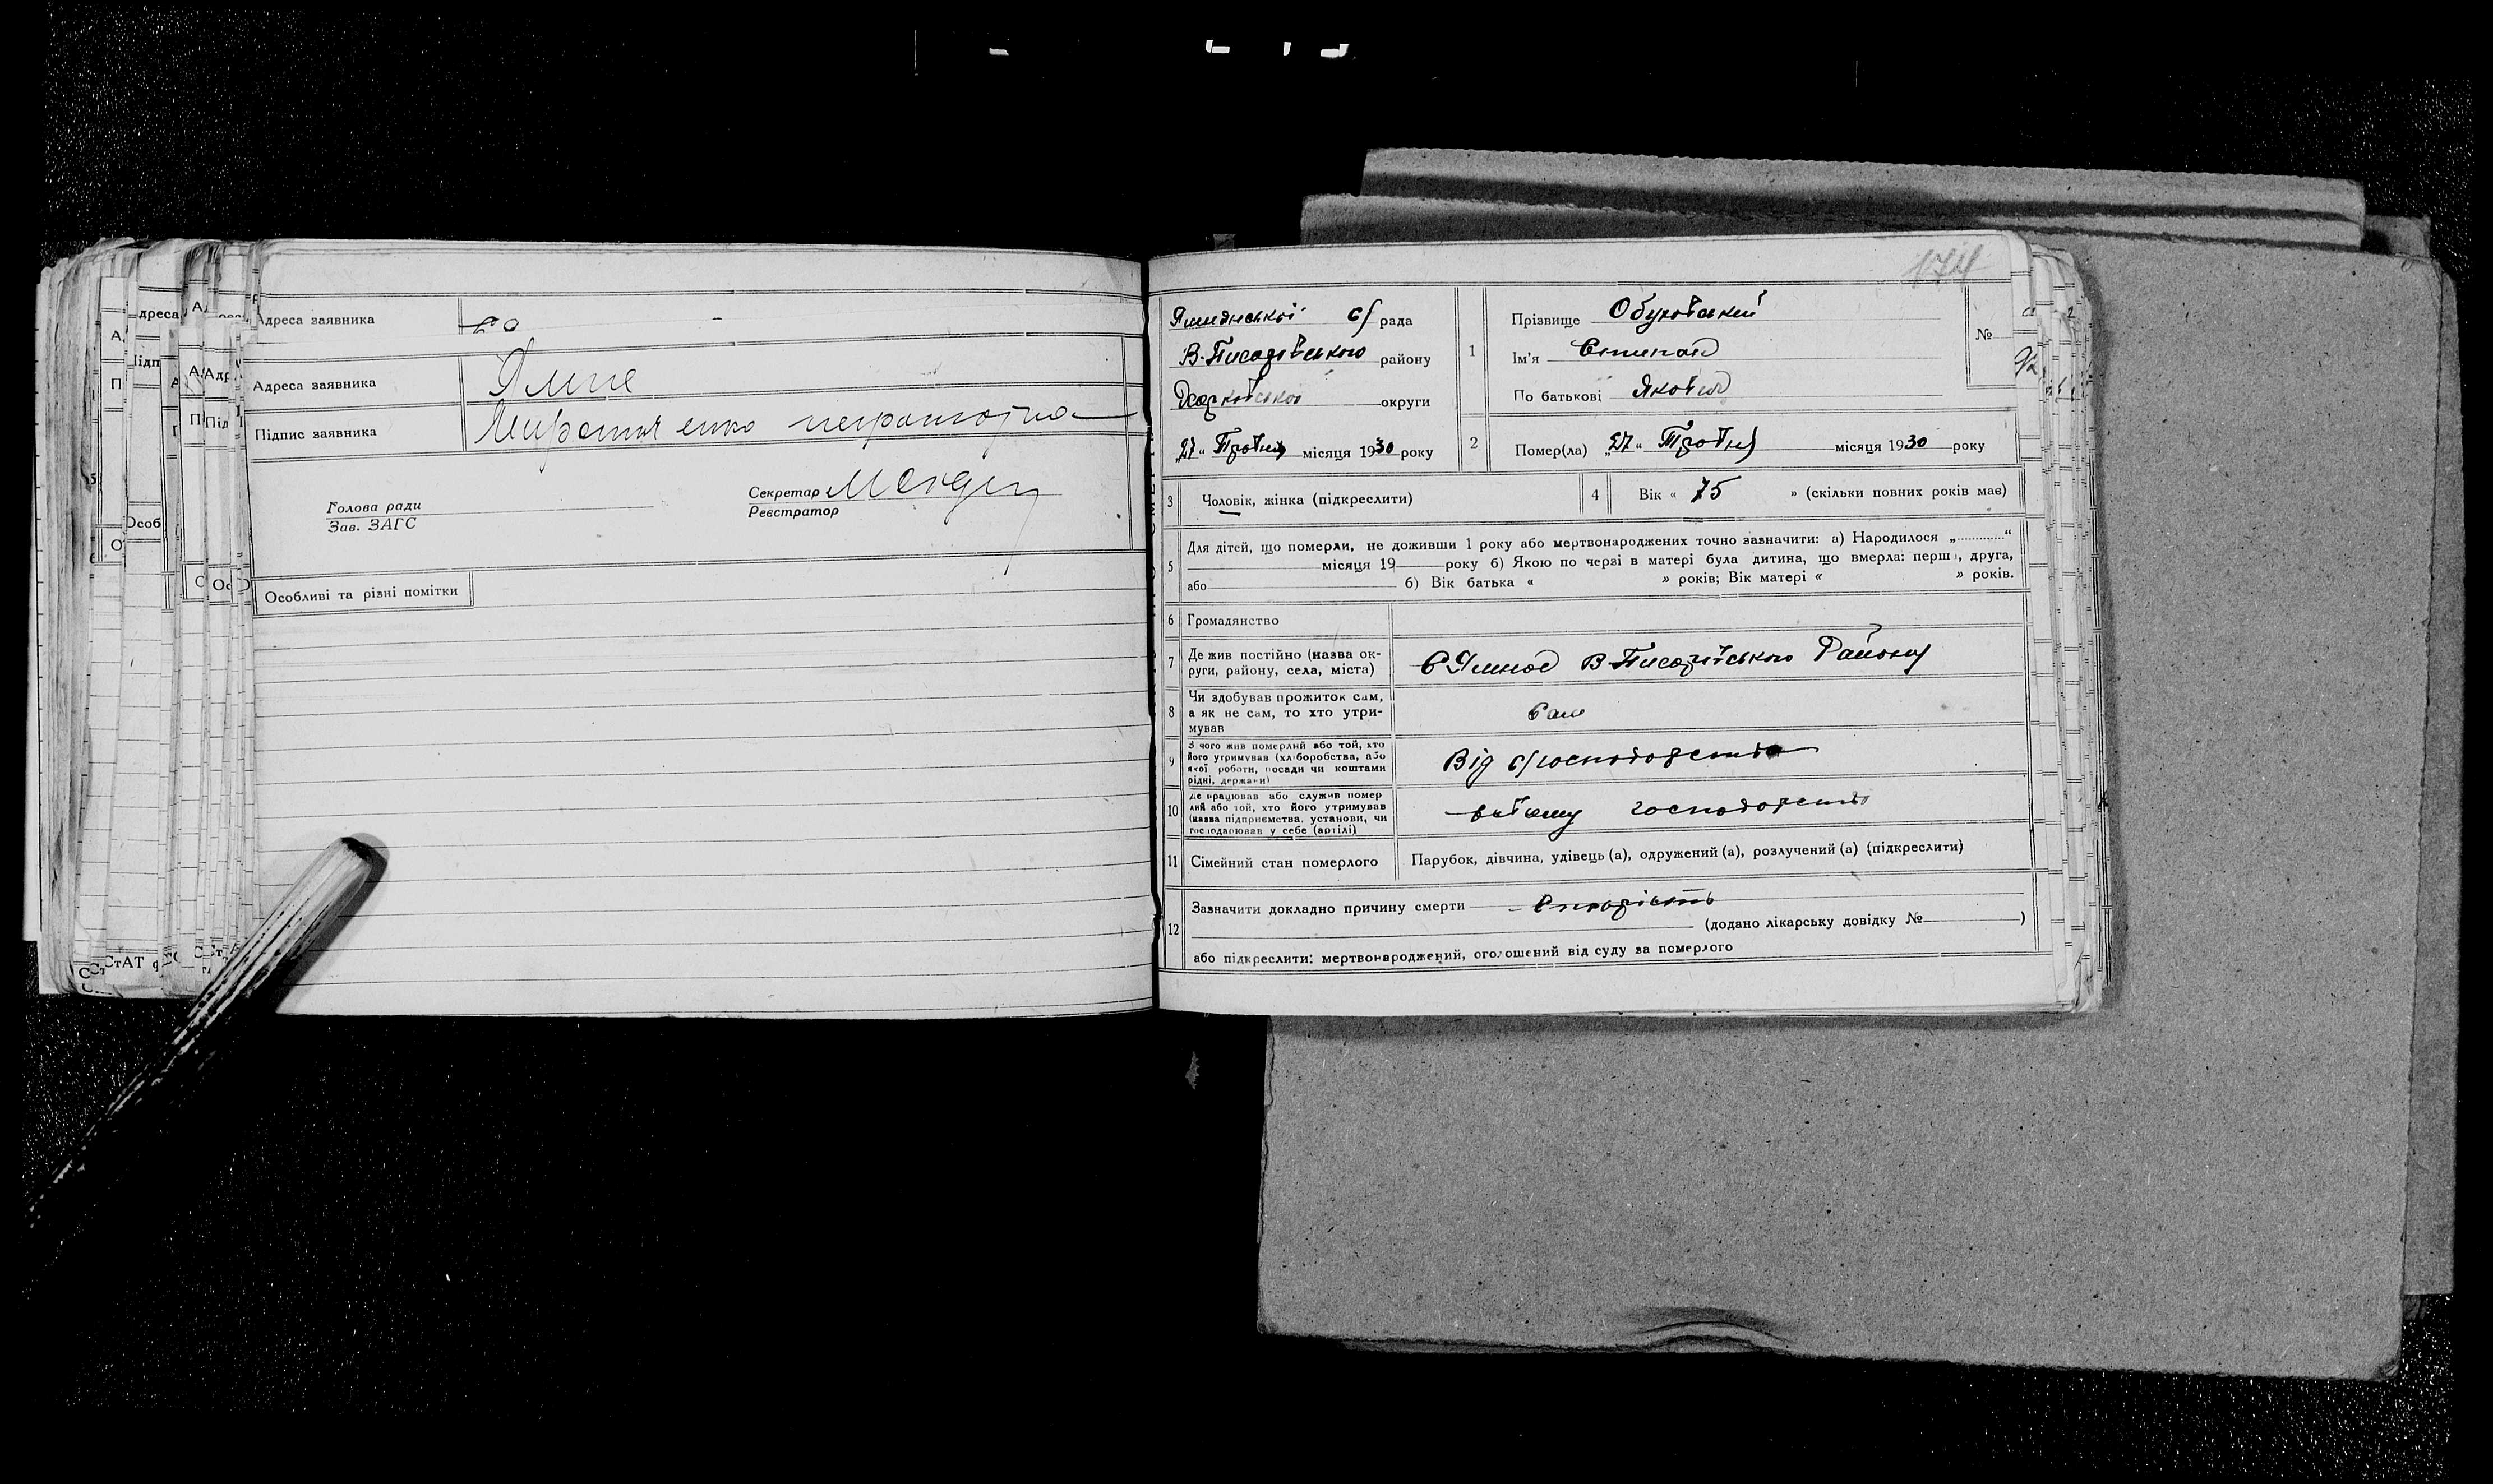 Адреса заявника
Адреса заявника Ямне
Підпис заявника неграмотна
Голова ради
Зав. ЗАГС
Секретар
Реєстратор
Особливі та різні помітки
174
с/ рада
В-Писарівського району
Харківської округи
„27“ Травня місяця 1930 року
1
Прізвище
Ім'я Степан
По батькові Якович
№
2
Помер(ла) „27“ Травня місяця 1930 року
3 Чоловік, жінка (підкреслити)
4 Вік « 75 » (скільки повних років має)
5 Для дітей, що померли, не доживши 1 року або мертвонароджених точно зазначити: а) Народилося „............“
місяця 19 року б) Якою по черзі в матері була дитина, що вмерла: перша, друга,
або б) Вік батька « » років; Вік матері « » років.
6 Громадянство
7 Де жив постійно (назва ок-
руги, району, села, міста)
с Ямное В-Писарівського Району
8 Чи здобував прожиток сам,
а як не сам, то хто утри-
мував
Сам
9 З чого жив померлий або той, хто
його утримував (хліборобства, або
якої роботи, посади чи коштами
рідні, держави)
Від с/господарства
10 Де працював або служив помер
лий або той, хто його утримував
(назва підприємства, установи, чи
господарював у себе (артілі)
господарстві
11 Сімейний стан померлого
Парубок, дівчина, удівець (а), одружений (а), розлучений (а) (підкреслити)
12 Зазначити докладно причину смерти Старість
(додано лікарську довідку № )
або підкреслити: мертвонароджений, оголошений від суду за померлого